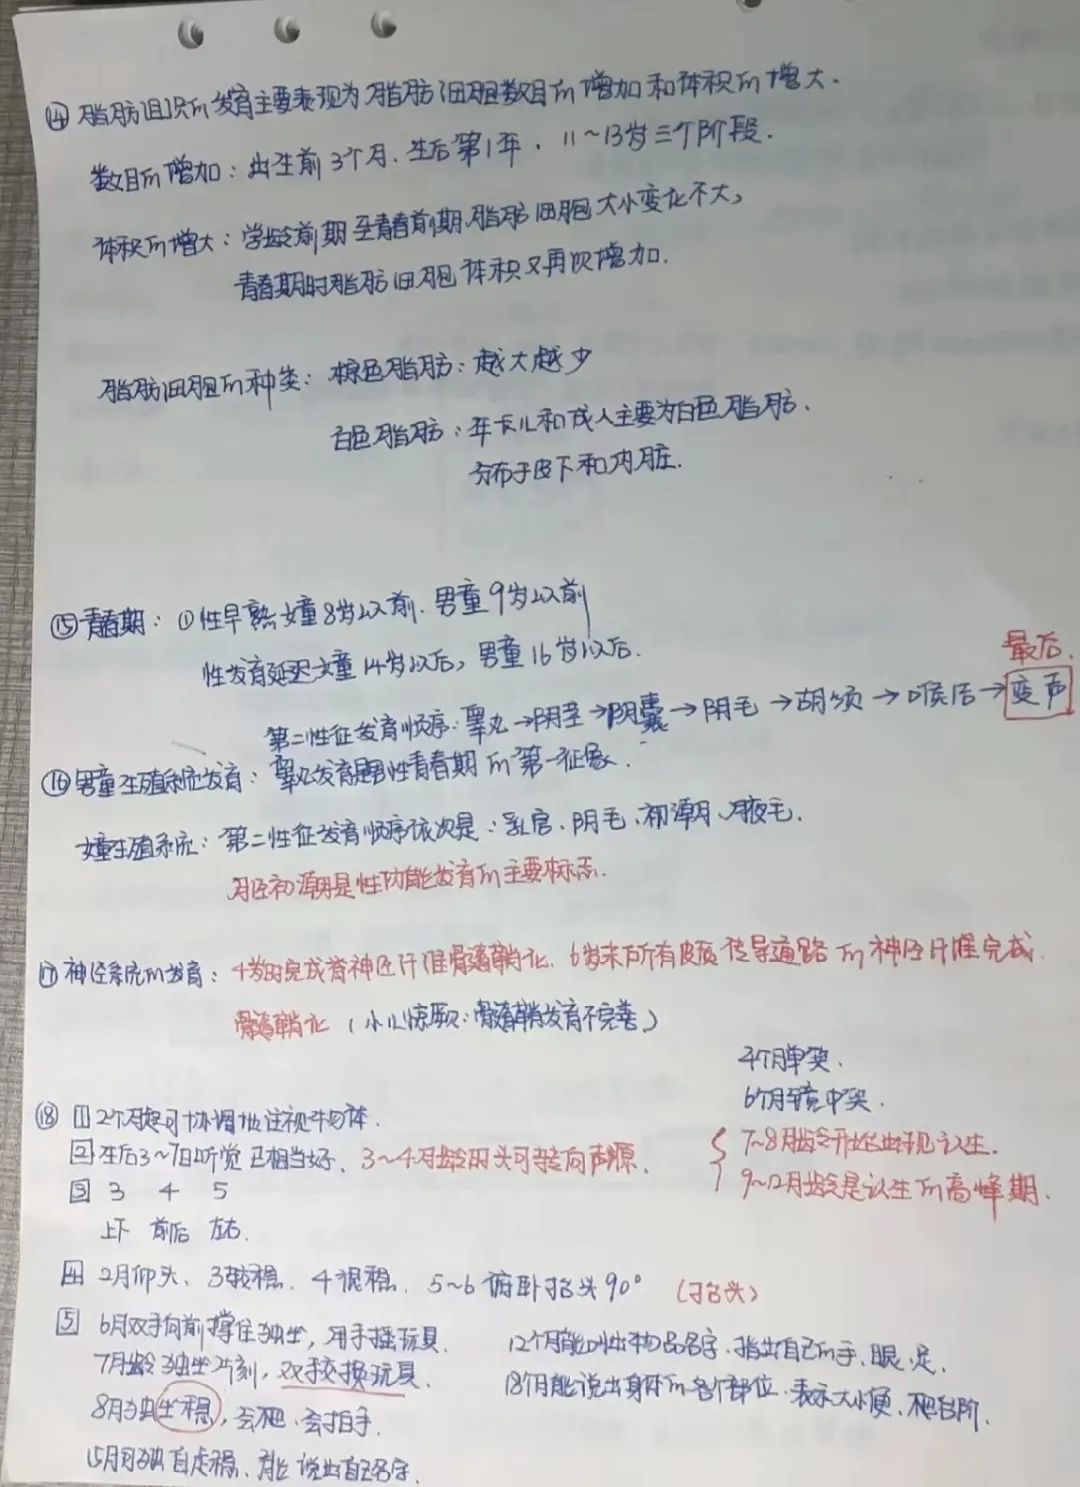 ⑭ 脂肪组织的发育主要表现为脂肪细胞数目的增加和体积的增大.
数目的增加：出生前3个月、生后第1年、11~13岁三个阶段.
体积的增大：学龄前期至青春前期脂肪细胞大小变化不大,
青春期时脂肪细胞体积又再次增加.
脂肪细胞的种类：棕色脂肪：越大越少
白色脂肪：年长儿和成人主要为白色脂肪.
分布于皮下和内脏.
⑮ 青春期：①性早熟女童8岁以前、男童9岁以前
性发育延迟女童14岁以后，男童16岁以后.
最后.
第二性征发育顺序：睾丸→阴茎→阴囊→阴毛→胡须→喉结→变声
⑯ 男童生殖系统发育：睾丸发育是男性青春期的第一征象.
女童生殖系统：第二性征发育顺序依次是：乳房、阴毛、初潮、腋毛.
月经初潮是性功能发育的主要标志.
⑰ 神经系统的发育：4岁时完成脊神经纤维髓鞘化、6岁末所有皮质传导通路的神经纤维完成
髓鞘化（小儿惊厥：髓鞘发育不完善）
4个月单笑.
6个月镜中笑.
⑱ 1 2个月起可协调地注视物体.
2 生后3~7日听觉已相当好、3~4月龄时头可转向声源.
7~8月龄开始出现认生.
9~12月龄是认生的高峰期.
3 3 4 5
上下 前后 左右.
4 2月仰头、3较稳、4很稳、5~6俯卧抬头90° （抬头）
5 6月双手向前撑住独坐，用手摇玩具.
7月龄独坐片刻，双手交换玩具.
8月独坐稳，会爬、会拍手.
15月可独自走稳、能说出自己名字.
12个月能叫出物品名字、指出自己的手、眼、足.
18个月能说出身体的各个部位、表示大小便、爬台阶.